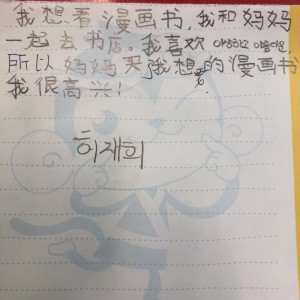 我想看漫画书,我和妈妈
一起去书店。我喜欢
所以妈妈买了我想的漫画书
我很高兴!
허재희